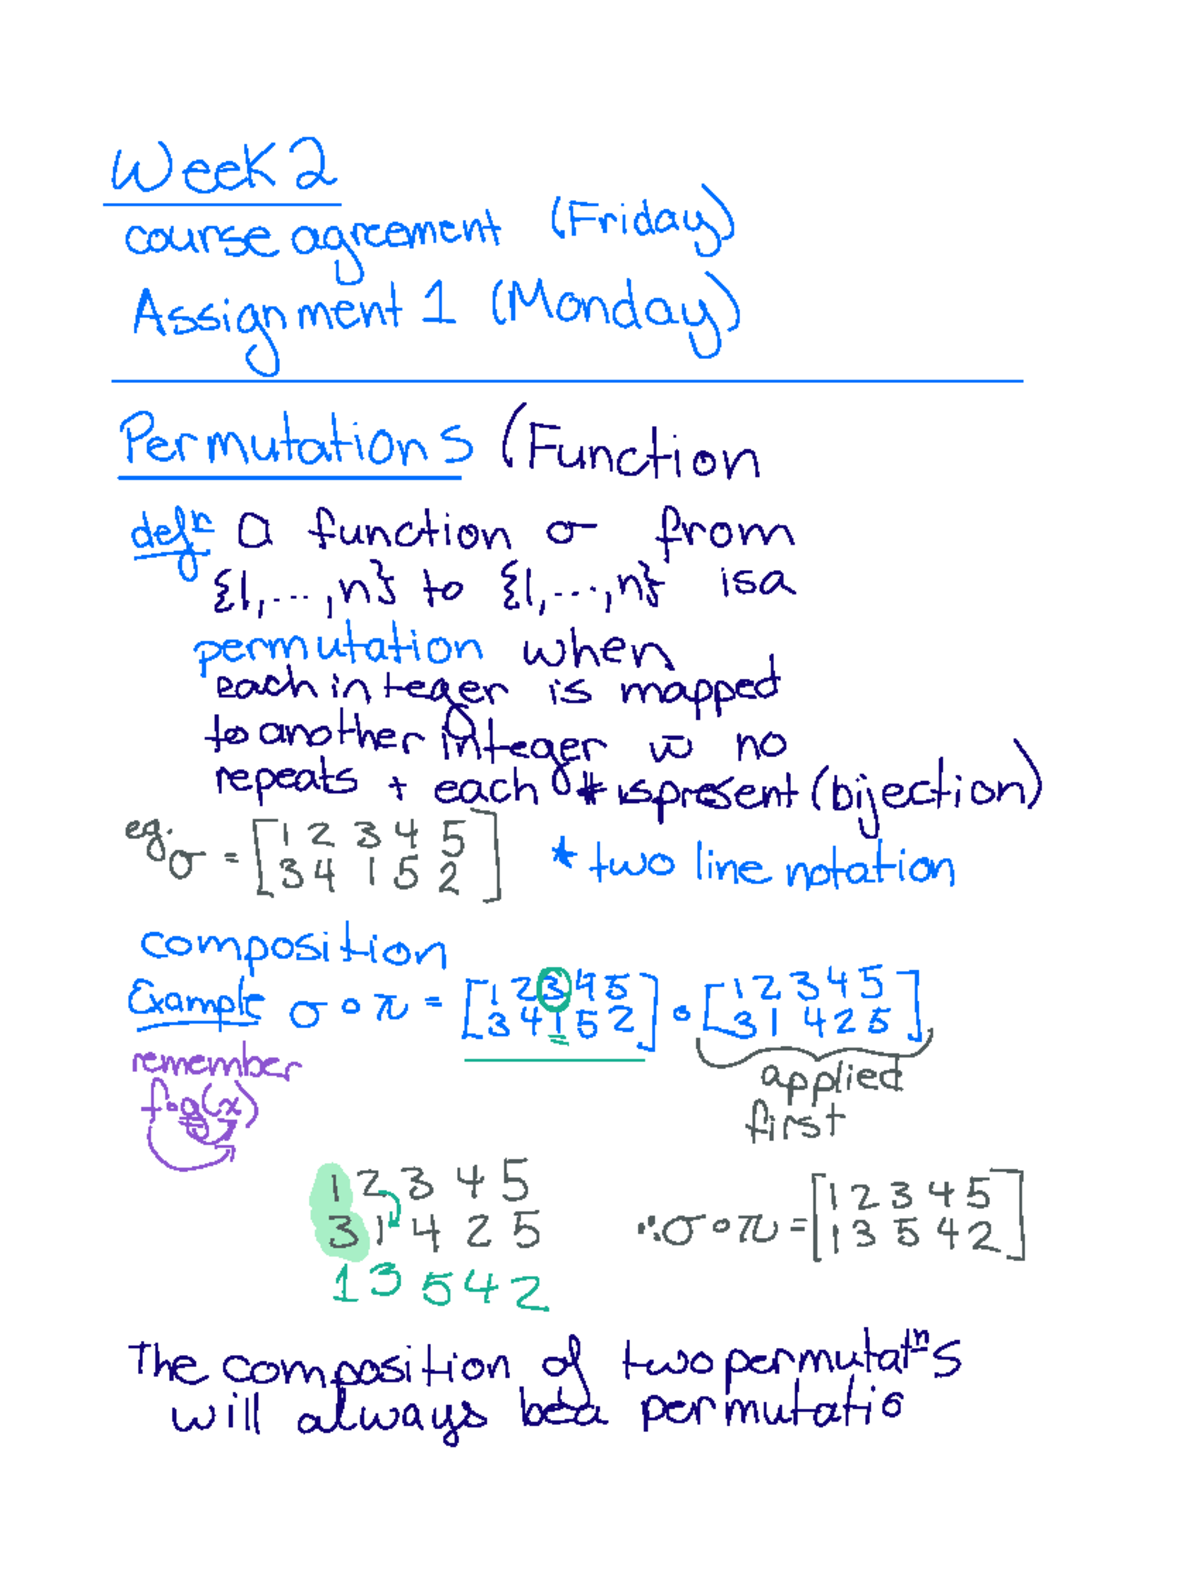 Week 2
course agreement (Friday)
Assignment 1 (Monday)
Permutations (Function
defⁿ a function σ from
{1,...,n} to {1,...,n} is a
permutation when
each integer is mapped
to another integer w̄ no
repeats + each # is present (bijection)
eg. σ = [1 2 3 4 5
3 4 1 5 2] * two line notation
composition
Example σ∘π = [1 2 3 4 5
3 4 1 5 2] ∘ [1 2 3 4 5
3 1 4 2 5]
remember
f∘g(x)
applied
first
1 2 3 4 5
3 1 4 2 5
1 3 5 4 2
∴ σ∘π = [1 2 3 4 5
1 3 5 4 2]
The composition of two permutatⁿs
will always be a permutatio